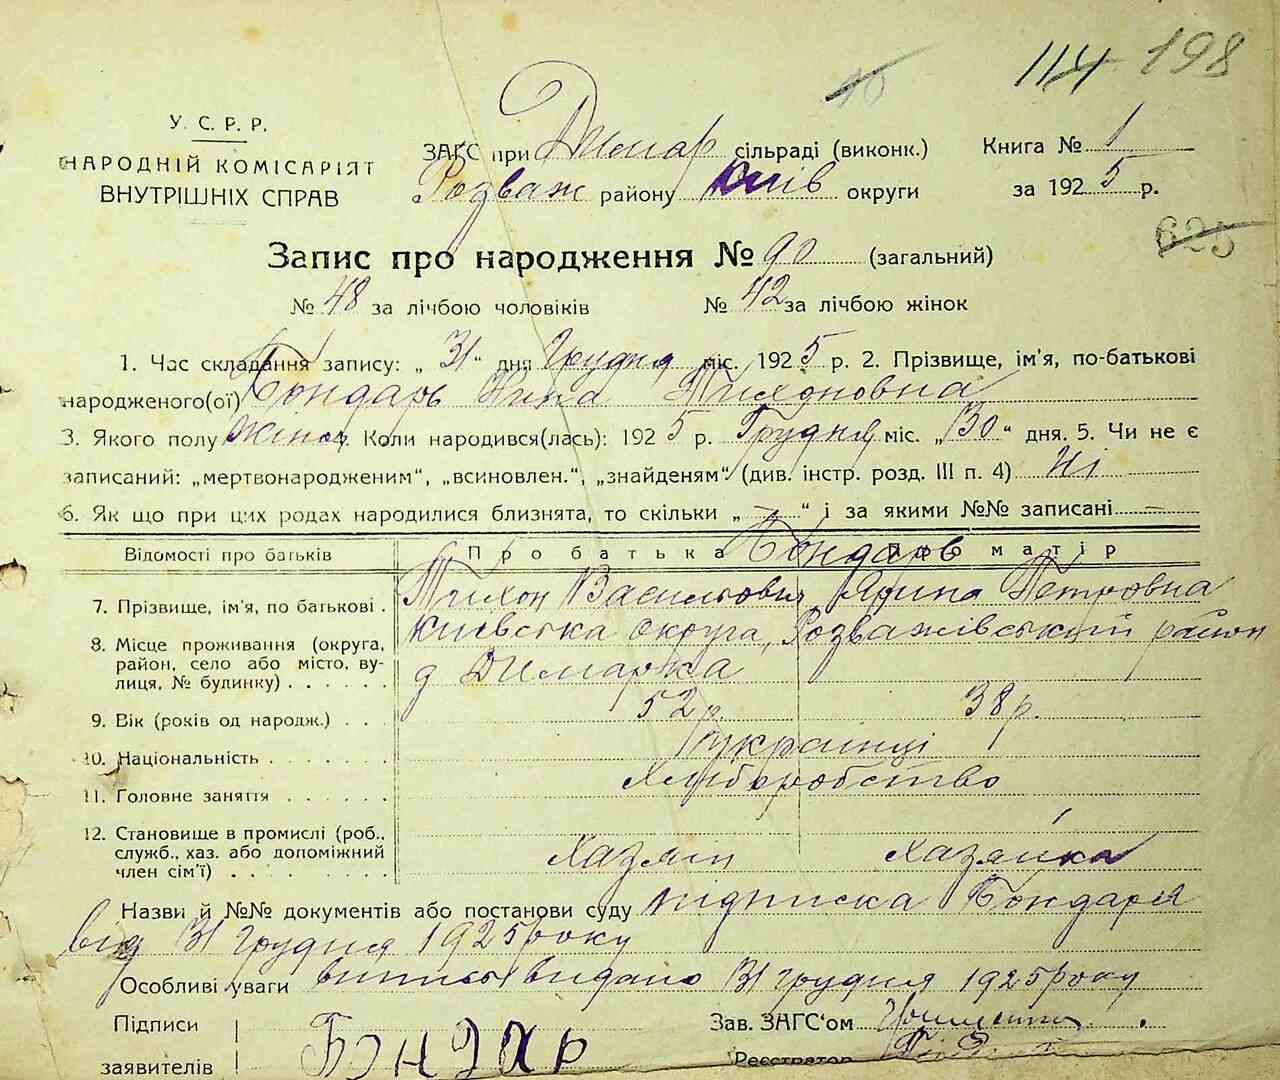 114 198
10
У. С. Р. Р.
НАРОДНІЙ КОМІСАРІЯТ
ВНУТРІШНІХ СПРАВ
ЗАГС при Димар сільраді (виконк.) Книга № 1
Розваж району Київ округи за 1925 р.
625
Запис про народження № 90 (загальний)
№ 48 за лічбою чоловіків № 42 за лічбою жінок
1. Час складання запису: „31“ дня Грудня міс. 1925 р. 2. Прізвище, ім'я, по-батькові
народженого(ої) Бондарь Нина Тихоновна
3. Якого полу жіноч 4. Коли народився(лась): 1925 р. Грудня міс. „30“ дня. 5. Чи не є
записаний: „мертвонародженим“, „всиновлен.“, „знайденям“ (див. інстр. розд. III п. 4) Ні
6. Як що при цих родах народилися близнята, то скільки „—“ і за якими №№ записані —
Відомості про батьків Про батька Про матір
Бондарь
7. Прізвище, ім'я, по батькові . Тихон Васильович Ярина Петровна
8. Місце проживання (округа, район, село або місто, вулиця, № будинку) . . . . . . Киевська округа, Розважівський район
д Димарка
9. Вік (років од народж.) . . . 52 р. 38 р.
10. Національність . . . . . . . українці
11. Головне заняття . . . . . . хліборобство
12. Становище в промислі (роб., служб., хаз. або допоміжний член сім'ї) . . . . . . . . Хазяін Хазяйка
Назви й №№ документів або постанови суду підписка Бондаря
від 31 грудня 1925 року
Особливі уваги випись видано 31 грудня 1925 року
Підписи Зав. ЗАГС‘ом
заявителів БОНДАР Реєстратор